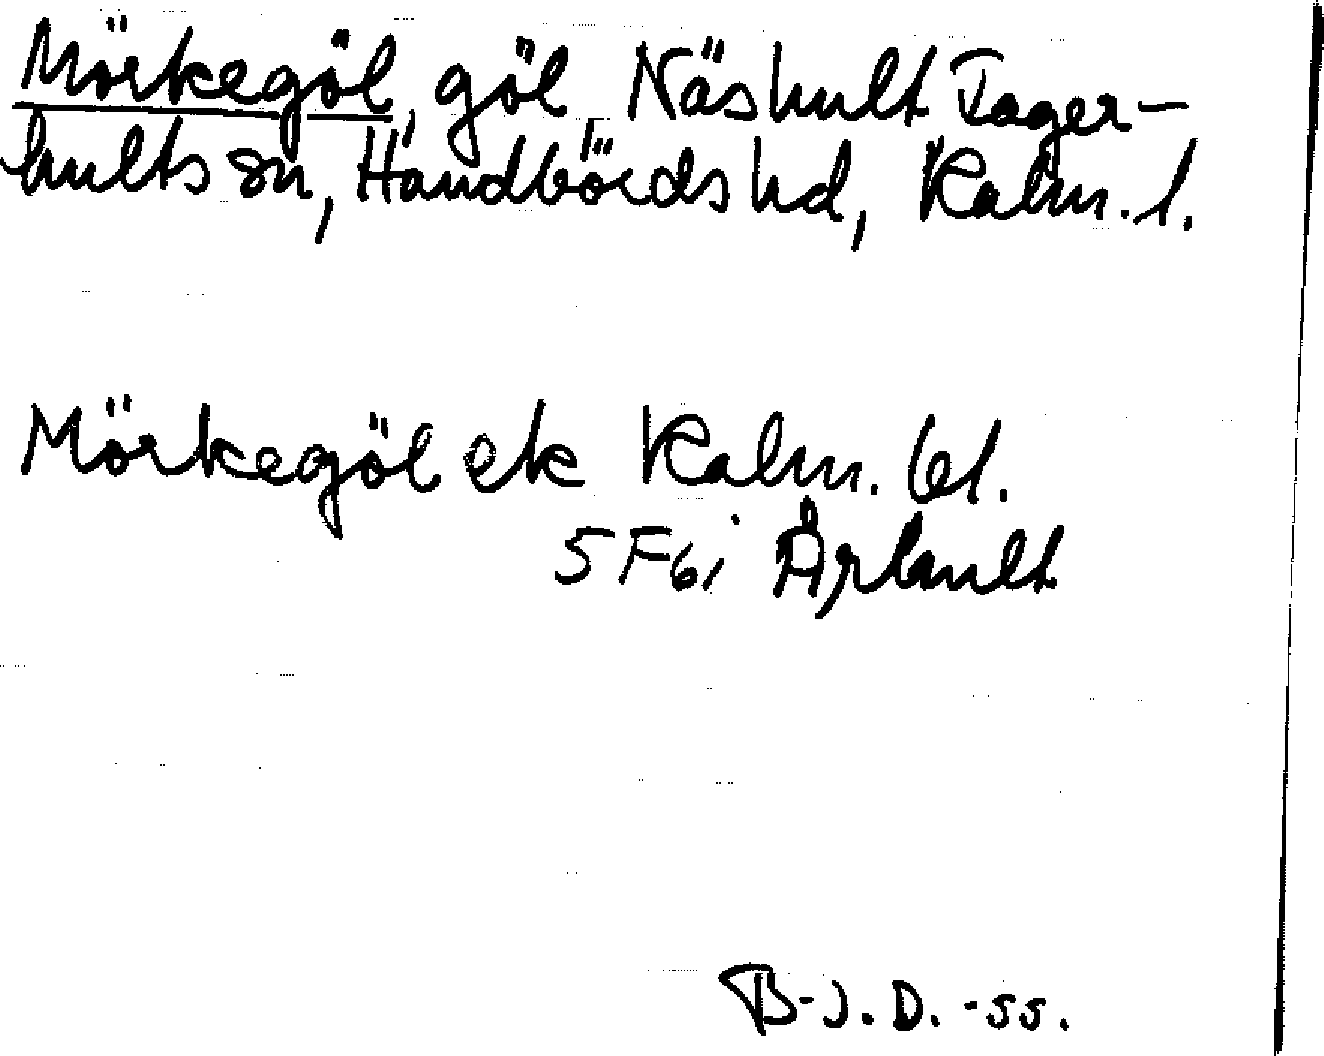 Mörkegöl, göl, Näshult Fager-
hults sn, Handbörds hd, Kalm. l.
Mörkegöl ek Kalm. bl.
5 F6i Århult
B-J.D. -55.